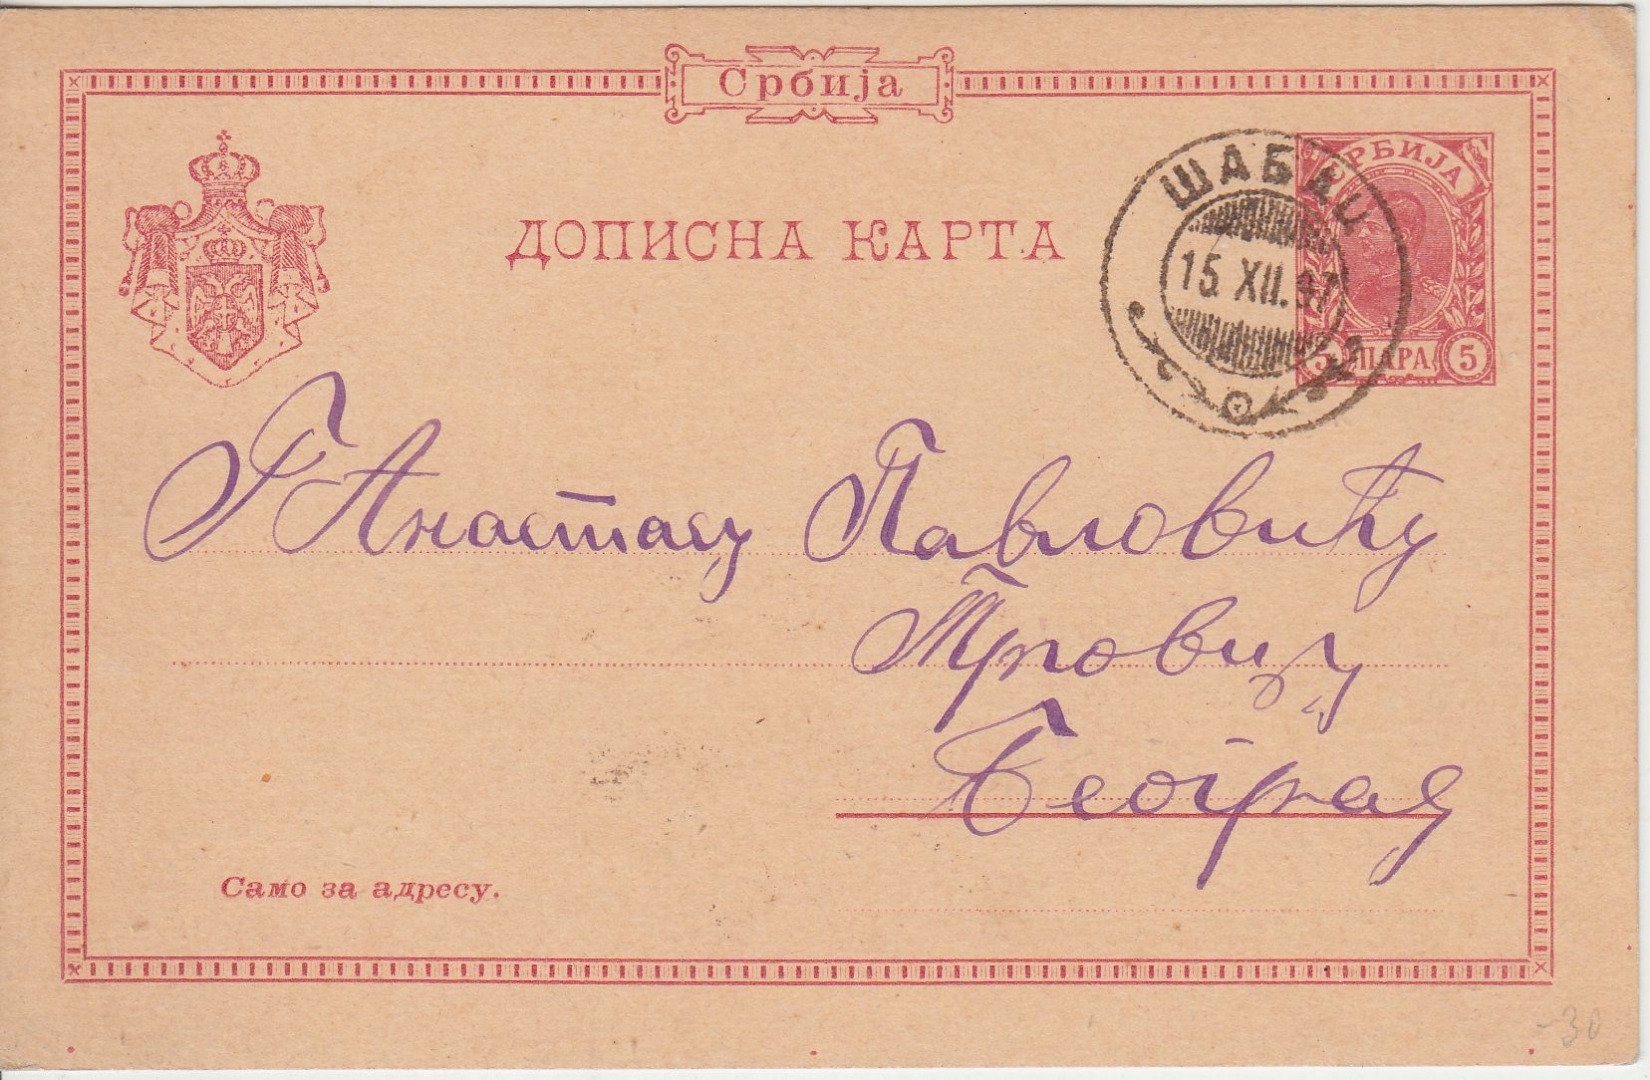 Србија
ДОПИСНА КАРТА
ШАБАЦ
15. XII. 97
СРБИЈА
5 ПАРА 5
Г Анастасу Павловићу
Трговцу
Београд
Само за адресу.
-30